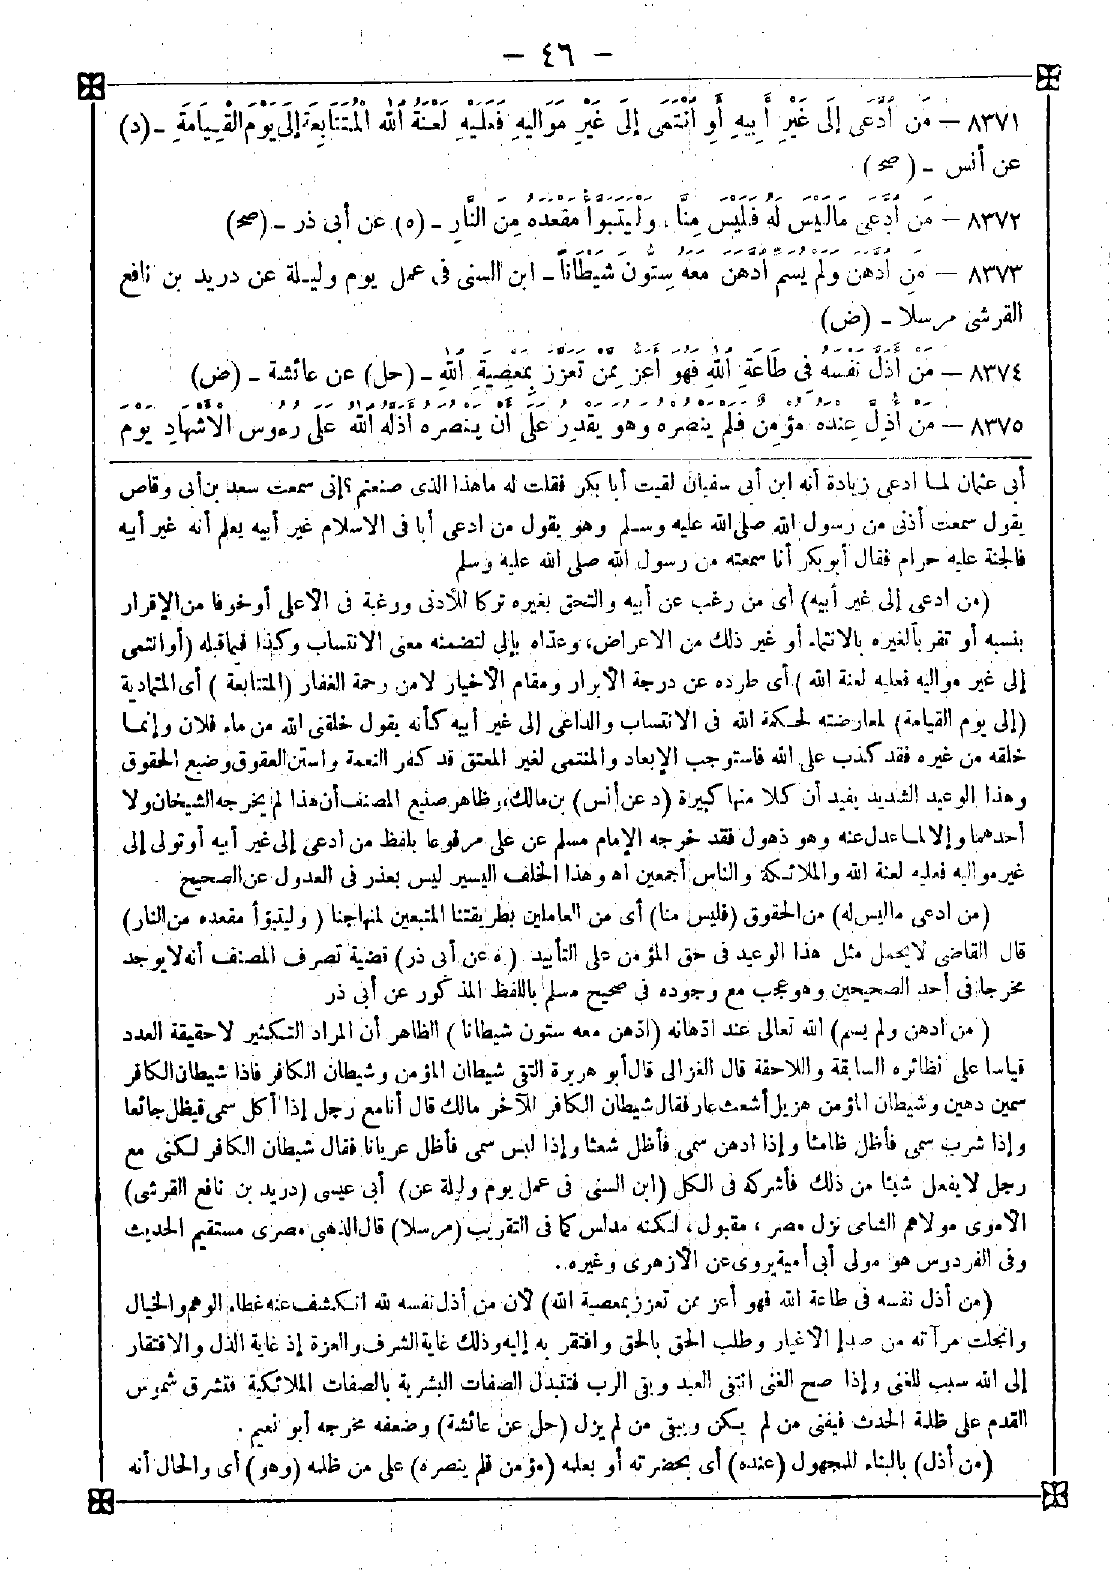 — ٤٦ —
٨٣٧١ — مَنِ ادَّعَى إِلَى غَيْرِ أَبِيهِ أَوِ انْتَمَى إِلَى غَيْرِ مَوَالِيهِ فَعَلَيْهِ لَعْنَةُ اللهِ الْمُتَتَابِعَةُ إِلَى يَوْمِ الْقِيَامَةِ - (د)
عن أنس - (صح)
٨٣٧٢ — مَنِ ادَّعَى مَالَيْسَ لَهُ فَلَيْسَ مِنَّا، وَلْيَتَبَوَّأْ مَقْعَدَهُ مِنَ النَّارِ - (ه) عن أبى ذر - (صح)
٨٣٧٣ — مَنِ ادَّهَنَ وَلَمْ يُسَمِّ ادَّهَنَ مَعَهُ سِتُّونَ شَيْطَانًا - ابن السنى فى عمل يوم وليلة عن دريد بن نافع
القرشى مرسلا - (ض)
٨٣٧٤ — مَنْ أَذَلَّ نَفْسَهُ فِى طَاعَةِ اللهِ فَهُوَ أَعَزُّ مِمَّنْ تَعَزَّزَ بِمَعْصِيَةِ اللهِ - (حل) عن عائشة - (ض)
٨٣٧٥ — مَنْ أُذِلَّ عِنْدَهُ مُؤْمِنٌ فَلَمْ يَنْصُرْهُ وَهُوَ يَقْدِرُ عَلَى أَنْ يَنْصُرَهُ أَذَلَّهُ اللهُ عَلَى رُءُوسِ الْأَشْهَادِ يَوْمَ
أبى عثمان لما ادعى زيادة أنه ابن أبى سفيان لقيت أبا بكر فقلت له ماهذا الذى صنعتم ؟ إنى سمعت سعد بن أبى وقاص
يقول سمعت أذنى من رسول الله صلى الله عليه وسلم وهو يقول من ادعى أبا فى الاسلام غير أبيه يعلم أنه غير أبيه
فالجنة عليه حرام فقال أبو بكر أنا سمعته من رسول الله صلى الله عليه وسلم
(من ادعى إلى غير أبيه) أى من رغب عن أبيه والتحق بغيره تركا للأدنى ورغبة فى الاعلى أو خوفا من الإقرار
بنسبه أو تقربا لغيره بالانتماء أو غير ذلك من الاعراض، وعداه بإلى لتضمنه معنى الانتساب وكذا فيما قبله (أو انتمى
إلى غير مواليه فعليه لعنة الله) أى طرده عن درجة الابرار ومقام الاخيار لامن رحمة الغفار (المتتابعة) أى المتمادية
(إلى يوم القيامة) لمعارضته لحكمة الله فى الانتساب والداعى إلى غير أبيه كأنه يقول خلقنى الله من ماء فلان وإنما
خلقه من غيره فقد كذب على الله فاستوجب الإبعاد والمنتمى لغير المعتق قد كفر النعمة واستن العقوق وضيع الحقوق
وهذا الوعيد الشديد يفيد أن كلا منها كبيرة (د عن أنس) بن مالك، وظاهر صنيع المصنف أن هذا لم يخرجه الشيخان ولا
أحدهما وإلا لما عدل عنه وهو ذهول فقد خرجه الإمام مسلم عن على مرفوعا بلفظ من ادعى إلى غير أبيه أو تولى إلى
غير مواليه فعليه لعنة الله والملائكة والناس أجمعين اه وهذا الخلف اليسير ليس بعذر فى العدول عن الصحيح
(من ادعى ماليس له) من الحقوق (فليس منا) أى من العاملين بطريقتنا المتبعين لمنهاجنا (وليتبوأ مقعده من النار)
قال القاضى لايحمل مثل هذا الوعيد فى حق المؤمن على التأبيد (ه عن أبى ذر) قضية تصرف المصنف أنه لا يوجد
مخرجا فى أحد الصحيحين وهو عجب مع وجوده فى صحيح مسلم باللفظ المذكور عن أبى ذر
(من ادهن ولم يسم) الله تعالى عند ادهانه (ادهن معه ستون شيطانا) الظاهر أن المراد التكثير لاحقيقة العدد
قياسا على نظائره السابقة واللاحقة قال الغزالى قال أبو هريرة التقى شيطان المؤمن وشيطان الكافر فاذا شيطان الكافر
سمين دهين وشيطان المؤمن هزيل أشعث عار فقال شيطان الكافر للآخر مالك قال أنا مع رجل إذا أكل سمى فيظل جائعا
وإذا شرب سمى فأظل ظامئا وإذا ادهن سمى فأظل شعثا وإذا لبس سمى فأظل عريانا فقال شيطان الكافر لكنى مع
رجل لا يفعل شيئا من ذلك فأشركه فى الكل (ابن السنى فى عمل يوم وليلة عن) أبى عيسى (دريد بن نافع القرشى)
الأموى مولاهم الشامى نزل مصر، مقبول، لكنه مدلس كما فى التقريب (مرسلا) قال الذهبى مصرى مستقيم الحديث
وفى الفردوس هو مولى أبى أمية يروى عن الازهرى وغيره.
(من أذل نفسه فى طاعة الله فهو أعز ممن تعزز بمعصية الله) لأن من أذل نفسه لله انكشف عنه غطاء الوهم والخيال
وانجلت مرآته من صدإ الاغيار وطلب الحق بالحق وافتقر به إليه وذلك غاية الشرف والعزة إذ غاية الذل والافتقار
إلى الله سبب للغنى وإذا صح الغنى انتفى العبد وبقى الرب فتتبدل الصفات البشرية بالصفات الملائكية فتشرق شموس
القدم على ظلمة الحدث فيفنى من لم يكن ويبقى من لم يزل (حل عن عائشة) وضعفه مخرجه أبو نعيم.
(من أذل) بالبناء للمجهول (عنده) أى بحضرته أو بعلمه (مؤمن فلم ينصره) على من ظلمه (وهو) أى والحال أنه